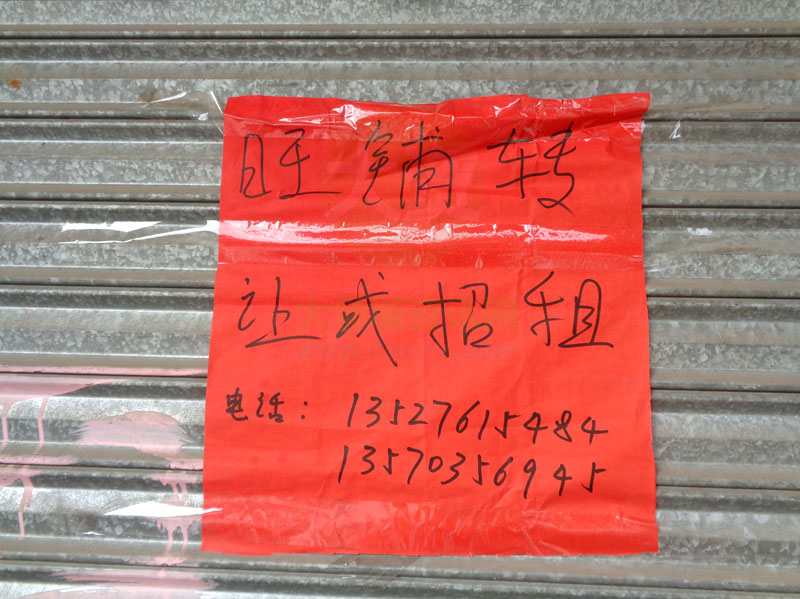 旺铺转
让或招租
电话：13527615484
13570356945